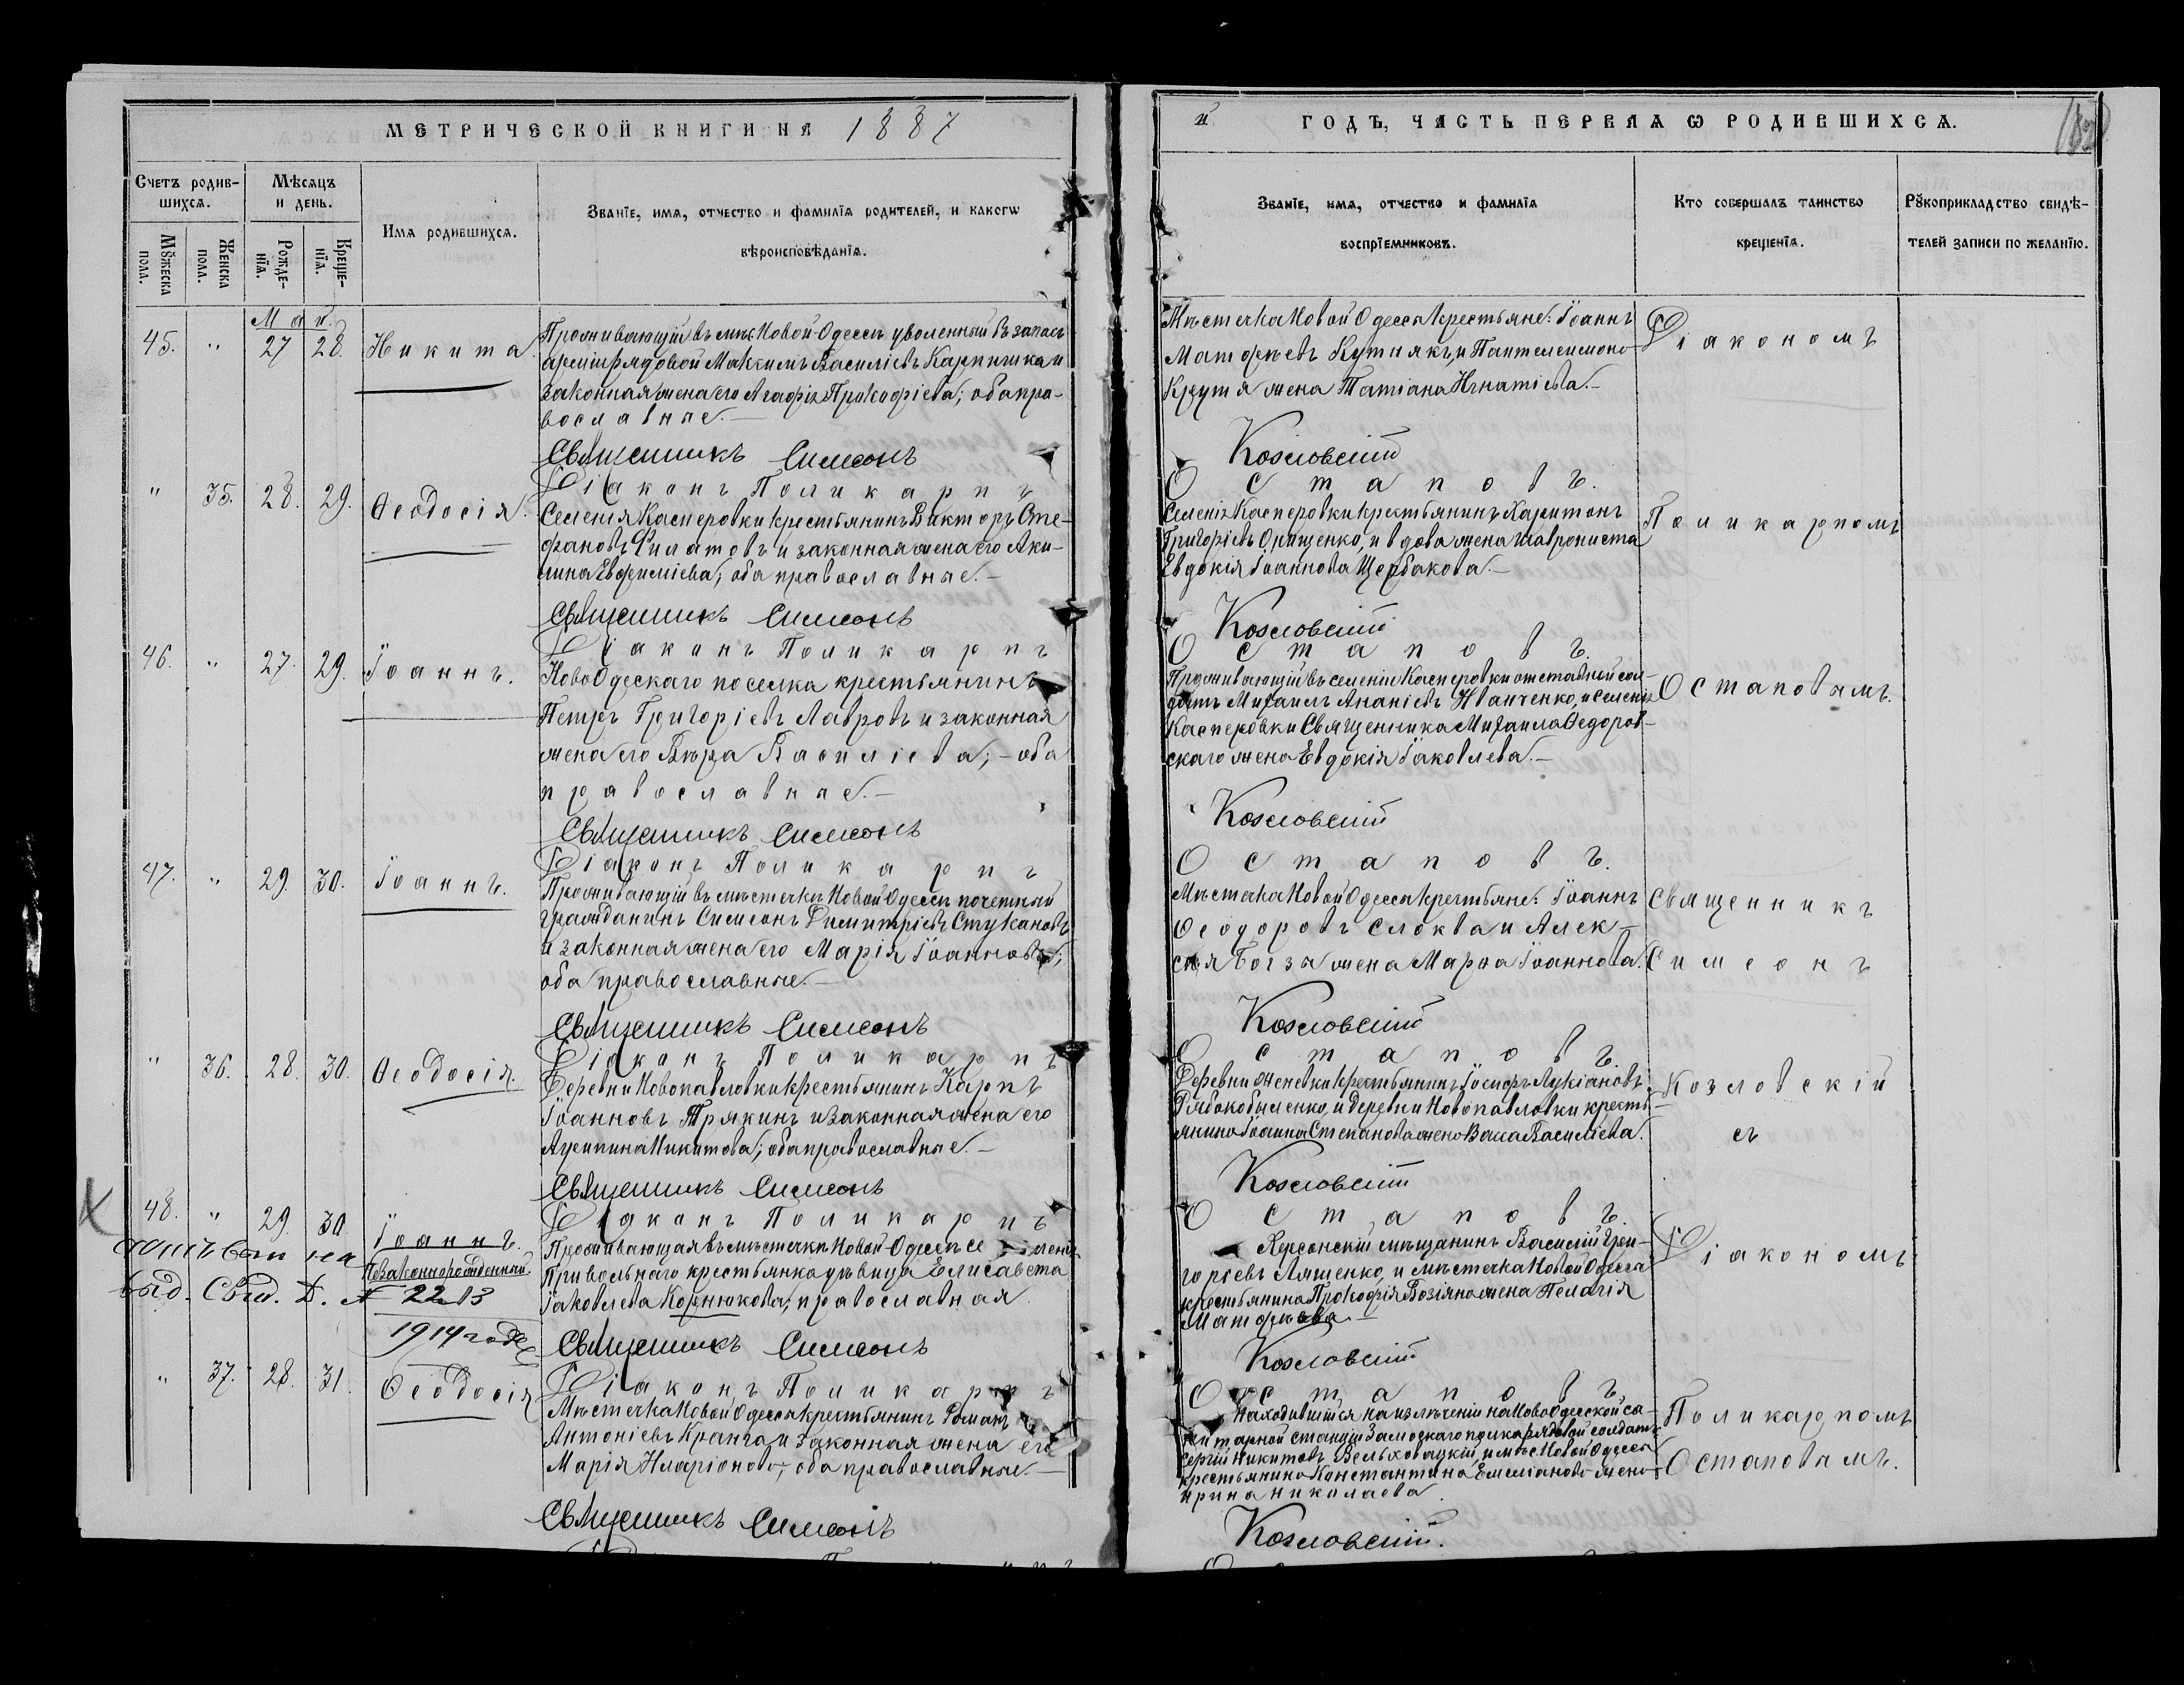 МЕТРИЧЕСКОЙ КНИГИ НА 1887
Счетъ родив-
шихся.
Мѣсяцъ
и день.
Имя родившихся.
Званіе, имя, отчество и фамилія родителей, и какогѡ
вѣроисповѣданія.
Мꙋжеска
пола.
Женска
пола.
Рожде-
нія.
Креще-
нія.
Май.
45. " 27 28. Никита.
Проживающій въ мѣс. Новой-Одессѣ уволенный въ запасъ
арміи рядовой Максимъ Василіевъ Карпичка и
законная жена его Агафія Прокофіева; оба пра-
вославные.-
Священникъ Симеонъ
Діаконъ Поликарпъ
" 35. 28. 29. Ѳеодосія.
Селенія Касперовки крестьянинъ Викторъ Сте-
фановъ Филатовъ и законная жена его Аки-
лина Евфиміева; оба православные.-
Священникъ Симеонъ
Діаконъ Поликарпъ
46. " 27. 29. Іоаннъ.
НовоОдескаго поселка крестьянинъ
Петръ Григоріевъ Лавровъ и законная
жена его Вѣра Василіева;- оба
православные.-
Священникъ Симеонъ
Діаконъ Поликарпъ
47. " 29. 30. Іоаннъ.
Проживающій въ мѣстечкѣ Новой Одессѣ почетный
гражданинъ Симеонъ Димитріевъ Стукановъ
и законная жена его Марія Іоаннова;
оба православные.-
Священникъ Симеонъ
Діаконъ Поликарпъ
" 36. 28. 30. Ѳеодосія.
Деревни Новопавловки крестьянинъ Карпъ
Іоанновъ Трякинъ и законная жена его
Агрипина Никитова; оба православные.-
Священникъ Симеонъ
Діаконъ Поликарпъ
48. " 29. 30. Іоаннъ.
Незаконнорожденный
выд. Свид. Д. № 2213
1914 года
Проживающая въ мѣстечкѣ Новой Одессѣ се менія
Привольнаго крестьянка дѣвица Елисавета
Іаковлева Корнюкова; православная
Священникъ Симеонъ
Діаконъ Поликарпъ
" 37. 28. 31. Ѳеодосія
Мѣстечка Новой Одесса крестьянинъ Романъ
Антоніевъ Кранга, и законная жена его
Марія Иларіонова; оба православные.-
Священникъ Симеонъ
й ГОДЪ, ЧАСТЬ ПЕРВАЯ Ѡ РОДИВШИХСЯ.
Званіе, имя, отчество и фамилія
воспріемниковъ.
Кто совершалъ таинство
крещенія.
Рꙋкоприкладство свидѣ-
телей записи по желанію.
Мѣстечка Новой Одесса крестьяне: Іоаннъ
Матфѣевъ Кутнякъ, и Пантелеимона
Крутя жена Татіана Игнатіева.-
Діакономъ
Козловскій
Остаповъ.
Селенія Касперовки крестьянинъ Харитонъ
Григоріевъ Онищенко, и вдова жена
Евдокія Іоаннова Щербакова.-
Поликарпомъ
Козловскій
Остаповъ.
Проживающій въ селеніи Касперовки отставной сол-
датъ Михаилъ Ананіевъ Иванченко, и селенія
Касперовки Священника Михаила Ѳедоров-
скаго жена Евдокія Іаковлева.-
Остаповымъ.
Козловскій
Остаповъ.
Мѣстечка Новой Одесса крестьяне: Іоаннъ
Ѳеодоровъ Слоква и Алек-
сія Богзы жена Марѳа Іоаннова.
Священникъ
Симеонъ
Козловскій
Остаповъ.
Деревни Женевки крестьянинъ Іосифъ Лукіановъ
Рябокобыленко, и деревни Новопавловки кресть-
янина Іоанна Степанова жена Васса Василіева.
Козловскій
съ
Козловскій
Остаповъ.
Херсонскій мѣщанинъ Василій Гри-
горіевъ Ляшенко, и мѣстечка Новой Одесса
крестьянина Прокофія Возіяна жена Пелагія
Матфѣева.-
Діакономъ
Козловскій
Остаповъ
Находившійся на излѣченіи на НовоОдесской са-
нитарной станціи Замоскаго полка рядовой солдатъ
Сергій Никитовъ Вельховацкій, и мѣс. Новой Одессы
крестьянина Константина Емеліанова жена
Ирина Николаева.
Поликарпомъ
Остаповымъ.
Козловскій.